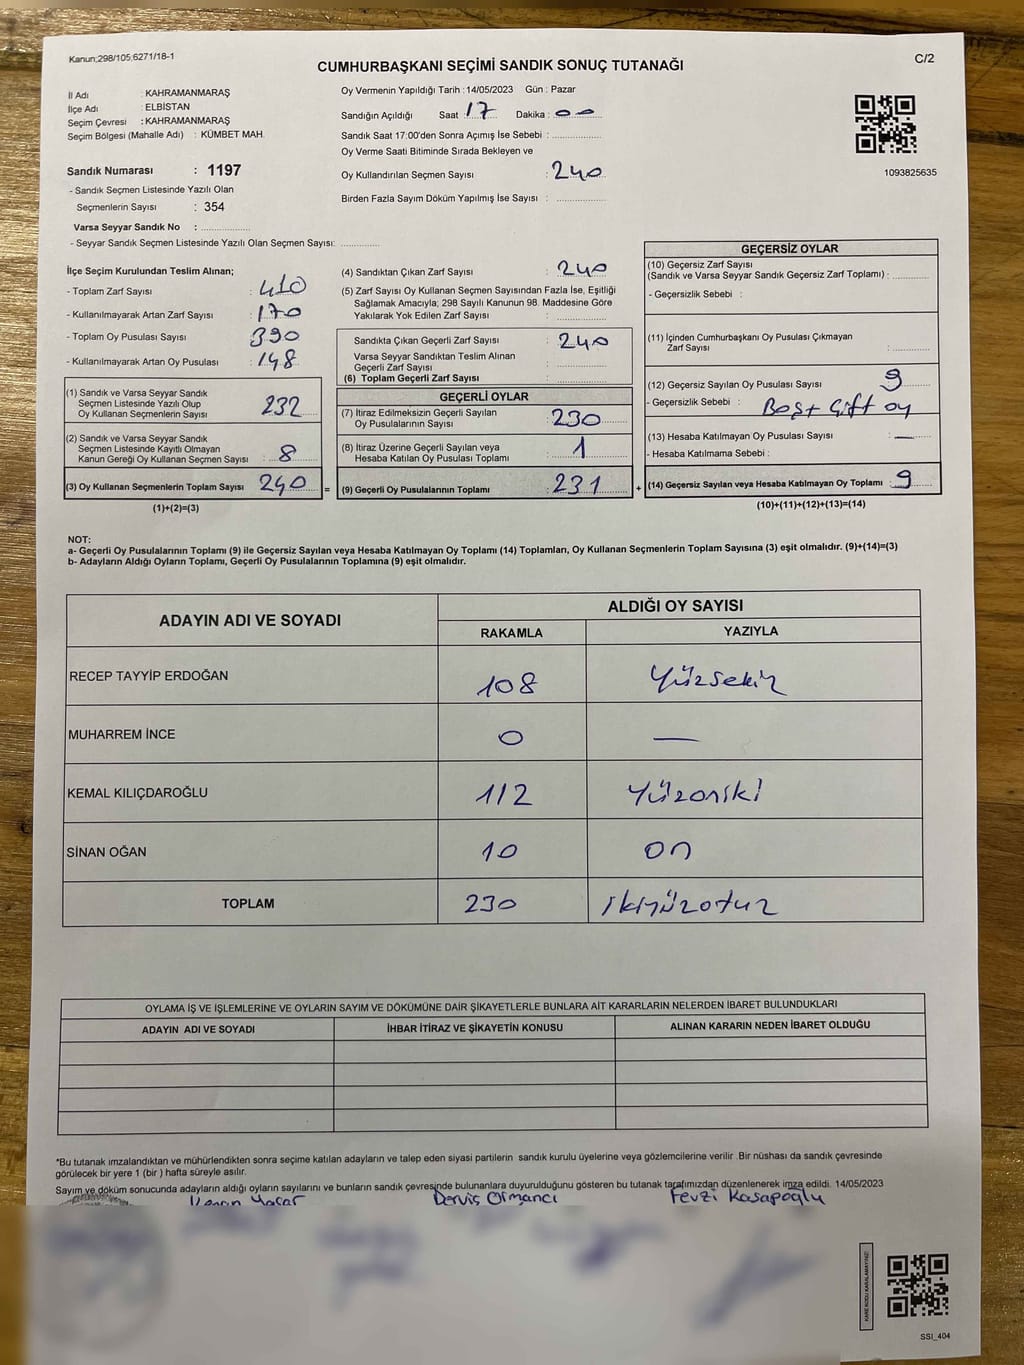 Kanun;298/105;6271/18-1
C/2
CUMHURBAŞKANI SEÇİMİ SANDIK SONUÇ TUTANAĞI
İl Adı : KAHRAMANMARAŞ
İlçe Adı : ELBİSTAN
Seçim Çevresi : KAHRAMANMARAŞ
Seçim Bölgesi (Mahalle Adı) : KÜMBET MAH.
Sandık Numarası : 1197
- Sandık Seçmen Listesinde Yazılı Olan
Seçmenlerin Sayısı : 354
Varsa Seyyar Sandık No :
- Seyyar Sandık Seçmen Listesinde Yazılı Olan Seçmen Sayısı:
Oy Vermenin Yapıldığı Tarih :14/05/2023 Gün : Pazar
Sandığın Açıldığı Saat : 17 Dakika : 00
Sandık Saat 17:00'den Sonra Açımış İse Sebebi :
Oy Verme Saati Bitiminde Sırada Bekleyen ve
Oy Kullandırılan Seçmen Sayısı : 240
Birden Fazla Sayım Döküm Yapılmış İse Sayısı :
1093825635
İlçe Seçim Kurulundan Teslim Alınan;
- Toplam Zarf Sayısı : 410
- Kullanılmayarak Artan Zarf Sayısı : 170
- Toplam Oy Pusulası Sayısı : 390
- Kullanılmayarak Artan Oy Pusulası : 148
(1) Sandık ve Varsa Seyyar Sandık
Seçmen Listesinde Yazılı Olup
Oy Kullanan Seçmenlerin Sayısı : 232
(2) Sandık ve Varsa Seyyar Sandık
Seçmen Listesinde Kayıtlı Olmayan
Kanun Gereği Oy Kullanan Seçmen Sayısı : 8
(3) Oy Kullanan Seçmenlerin Toplam Sayısı 240
(1)+(2)=(3)
=
(4) Sandıktan Çıkan Zarf Sayısı : 240
(5) Zarf Sayısı Oy Kullanan Seçmen Sayısından Fazla İse, Eşitliği
Sağlamak Amacıyla; 298 Sayılı Kanunun 98. Maddesine Göre
Yakılarak Yok Edilen Zarf Sayısı :
Sandıkta Çıkan Geçerli Zarf Sayısı : 240
Varsa Seyyar Sandıktan Teslim Alınan
Geçerli Zarf Sayısı :
(6) Toplam Geçerli Zarf Sayısı :
GEÇERLİ OYLAR
(7) İtiraz Edilmeksizin Geçerli Sayılan
Oy Pusulalarının Sayısı : 230
(8) İtiraz Üzerine Geçerli Sayılan veya
Hesaba Katılan Oy Pusulası Toplamı : 1
(9) Geçerli Oy Pusulalarının Toplamı : 231
+
GEÇERSİZ OYLAR
(10) Geçersiz Zarf Sayısı
(Sandık ve Varsa Seyyar Sandık Geçersiz Zarf Toplamı) :
- Geçersizlik Sebebi :
(11) İçinden Cumhurbaşkanı Oy Pusulası Çıkmayan
Zarf Sayısı :
(12) Geçersiz Sayılan Oy Pusulası Sayısı : 9
- Geçersizlik Sebebi : Boş + Çift oy
(13) Hesaba Katılmayan Oy Pusulası Sayısı : —
- Hesaba Katılmama Sebebi :
(14) Geçersiz Sayılan veya Hesaba Katılmayan Oy Toplamı : 9
(10)+(11)+(12)+(13)=(14)
NOT:
a- Geçerli Oy Pusulalarının Toplamı (9) ile Geçersiz Sayılan veya Hesaba Katılmayan Oy Toplamı (14) Toplamları, Oy Kullanan Seçmenlerin Toplam Sayısına (3) eşit olmalıdır. (9)+(14)=(3)
b- Adayların Aldığı Oyların Toplamı, Geçerli Oy Pusulalarının Toplamına (9) eşit olmalıdır.
ADAYIN ADI VE SOYADI
ALDIĞI OY SAYISI
RAKAMLA YAZIYLA
RECEP TAYYİP ERDOĞAN 108 Yüzsekiz
MUHARREM İNCE 0 —
KEMAL KILIÇDAROĞLU 112 Yüzoniki
SİNAN OĞAN 10 on
TOPLAM 230 ikiyüzotuz
OYLAMA İŞ VE İŞLEMLERİNE VE OYLARIN SAYIM VE DÖKÜMÜNE DAİR ŞİKAYETLERLE BUNLARA AİT KARARLARIN NELERDEN İBARET BULUNDUKLARI
ADAYIN ADI VE SOYADI İHBAR İTİRAZ VE ŞİKAYETİN KONUSU ALINAN KARARIN NEDEN İBARET OLDUĞU
*Bu tutanak imzalandıktan ve mühürlendikten sonra seçime katılan adayların ve talep eden siyasi partilerin sandık kurulu üyelerine veya gözlemcilerine verilir. Bir nüshası da sandık çevresinde
görülecek bir yere 1 (bir) hafta süreyle asılır.
Sayım ve döküm sonucunda adayların aldığı oyların sayılarını ve bunların sandık çevresinde bulunanlara duyurulduğunu gösteren bu tutanak tarafımızdan düzenlenerek imza edildi. 14/05/2023
Kenan Yaşar Derviş Ormancı Fevzi Kasapoğlu
KARE KODU KARALAMAYINIZ!
SSI_404